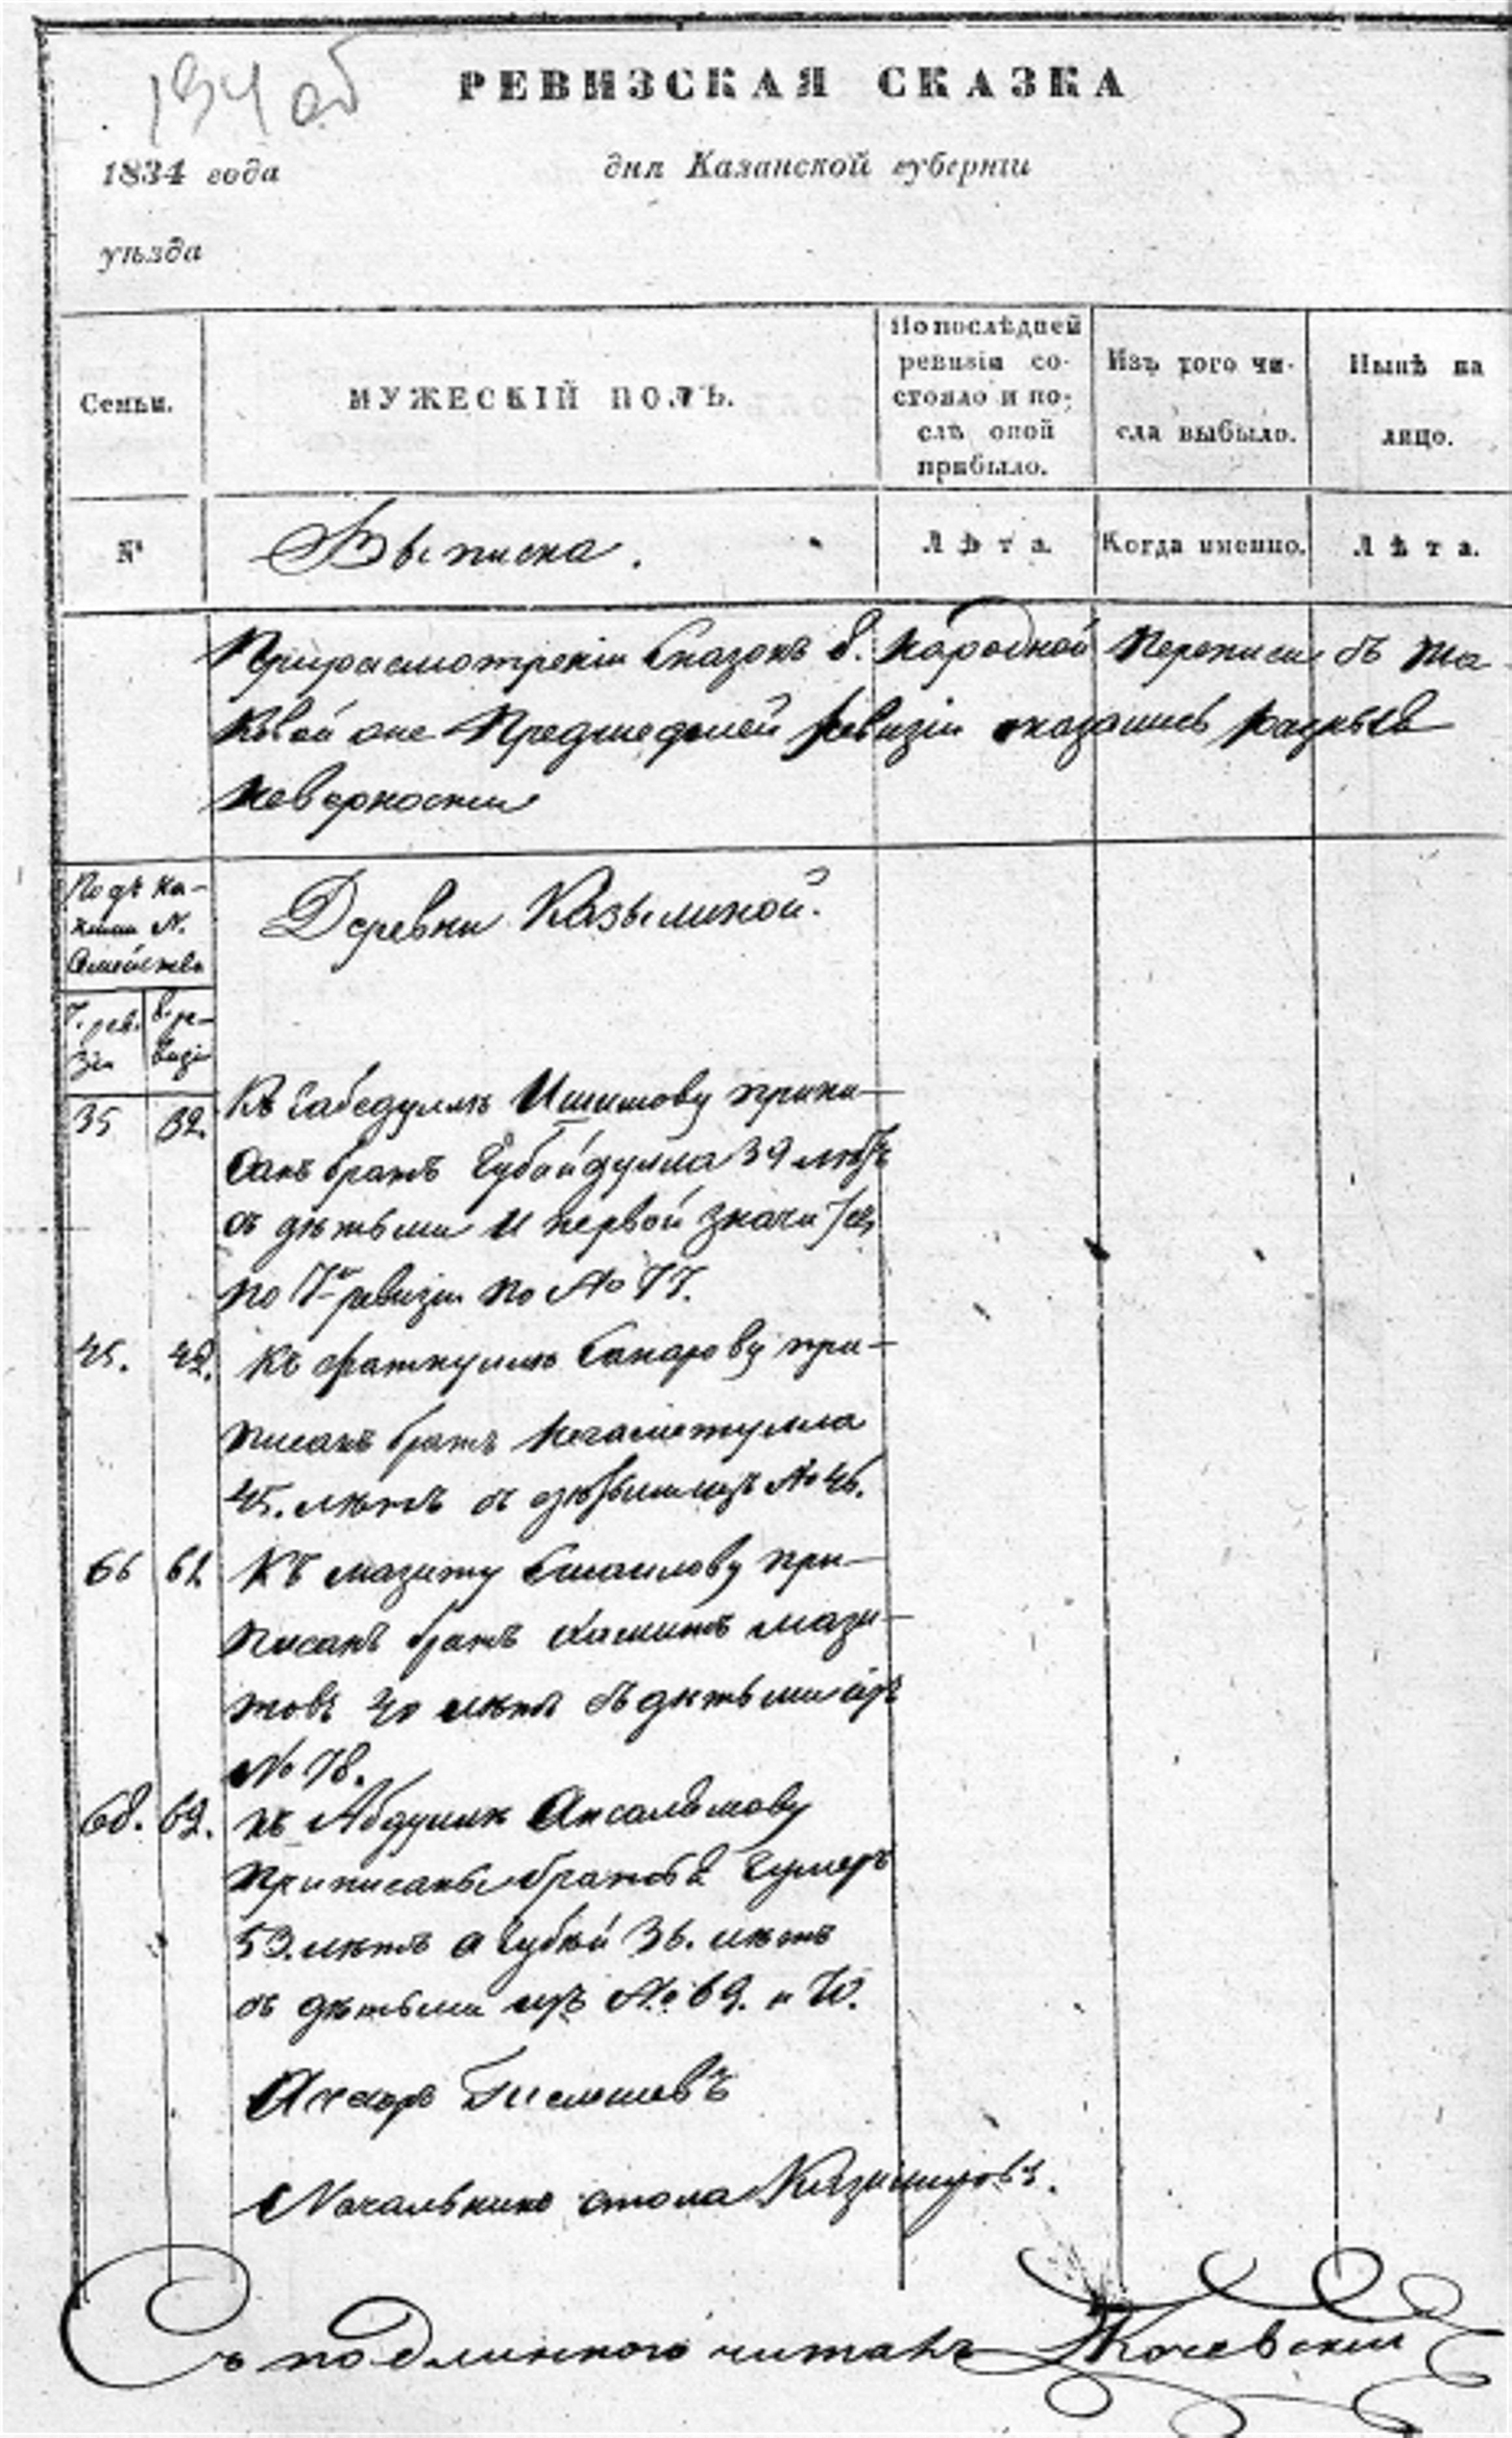 194 об
РЕВИЗСКАЯ СКАЗКА
1834 года
дня Казанской губерніи
уѣзда
Семьи.
МУЖЕСКІЙ ПОЛЪ.
По послѣдней ревизіи состояло и послѣ оной прибыло.
Изъ того числа выбыло.
Нынѣ на лицо.
№
Выписка.
Лѣта.
Когда именно.
Лѣта.
При расмотреніи Сказокъ 8. Народной Переписи съ та
ковой оне Предшедшей ревизіи оказались разныя
неверности
Подъ ка-
кими №.
Семейства
Деревни Казылиной.
7. реви
зіи
8. ре-
визіи
35 32.
Къ Габедуллѣ Ишимову припи-
санъ братъ Губайдулла 39 лѣтъ
съ дѣтьми и первой значится
по 7й ревизіи по № 77.
45. 42.
Къ Фаткуллѣ Сапарову при-
писанъ братъ Негаметулла
45. лѣтъ съ изъ № 46.
66 61
Къ Мазиту Смаилову при-
писанъ братъ мази-
товъ 40 лѣтъ съ дѣтьми изъ
№ 78.
68. 62.
Къ Абдуллѣ Аксалямову
приписаны братья Гумеръ
53. лѣтъ а Губей 36. лѣтъ
съ дѣтьми изъ № 69. и 70.
Начальникъ стола
Съ подлиннаго читалъ